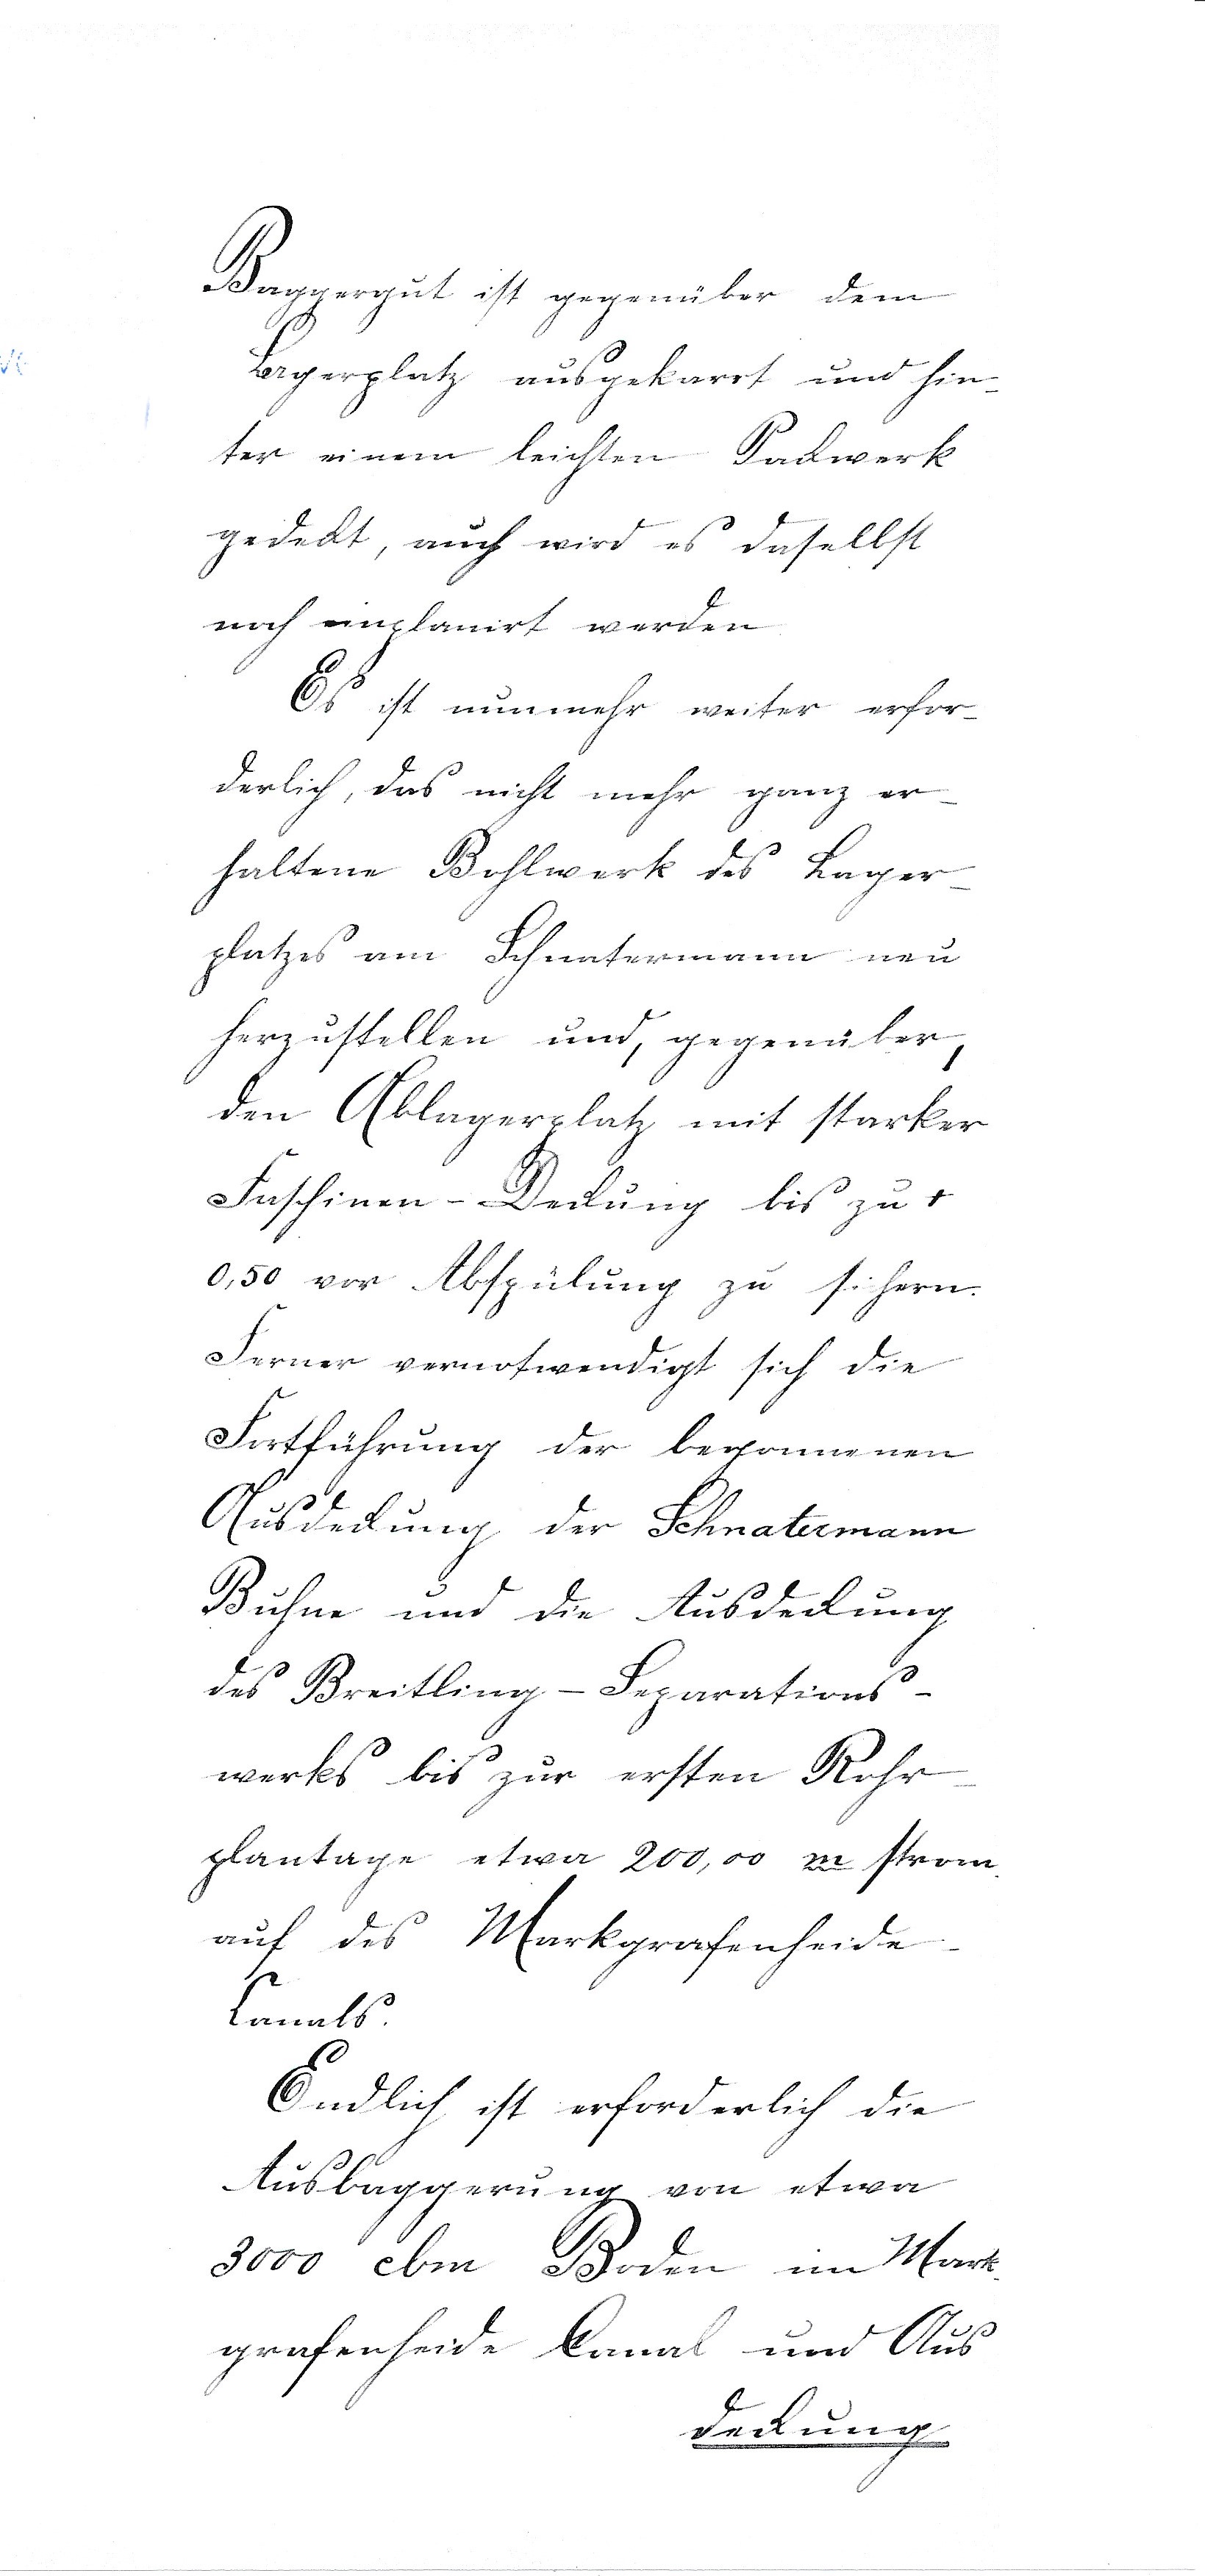 Baggergut ist gegenüber dem
Lagerplatz ausgekarrt und hin-
ter einem leichten Packwerk
gedeckt, auch wird es dasellbst
noch einplanirt werden
Es ist nunmehr weiter erfor-
derlich, das nicht mehr ganz er-
haltene Bohlwerk des Lager-
platzes am Schnatermann neu
herzustellen und, gegenüber,
den Ablagerplatz mit starker
Faschinen-Deckung bis zu +
0,50 vor Abspülung zu sichern.
Ferner vernotwendigt sich die
Fortführung der begonnenen
Ausdeckung der Schnatermann
Buhne und die Ausdeckung
des Breitling-Separations-
werks bis zur ersten Rohr-
plantage etwa 200,00 m strom-
auf des Markgrafenheide-
Canals.
Endlich ist erforderlich die
Ausbaggerung von etwa
3000 cbm Boden im Mark-
grafenheide Canal und Aus
deckung